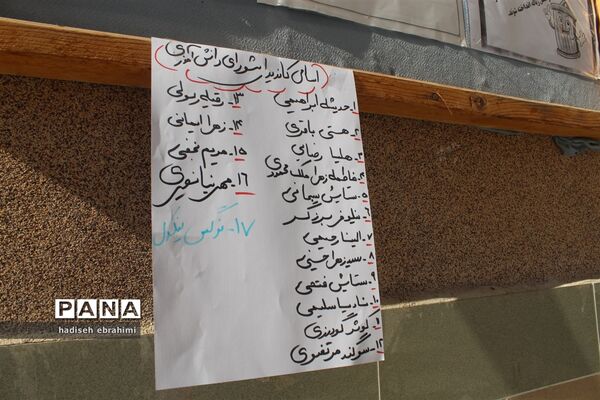 اسامی کاندیدای شورای دانش آموزی
۱- حدیثه ابراهیمی
۲- هستی باقری
۳- هلیا رضایی
۴- فاطمه زهرا ملک محمودی
۵- ستایش سیمائی
۶- نیلوفر برزگر
۷- الینا رحیمی
۸- سیده زهرا حسینی
۹- ستایش فتحی
۱۰- پارمیا سلیمی
۱۱- کوثر گودرزی
۱۲- سوگند مرتضوی
۱۳- رقیه رسولی
۱۴- زهرا ایمانی
۱۵- مریم نجفی
۱۶- مهرنیا نوری
۱۷- نرگس نیکول
PANA
hadiseh ebrahimi